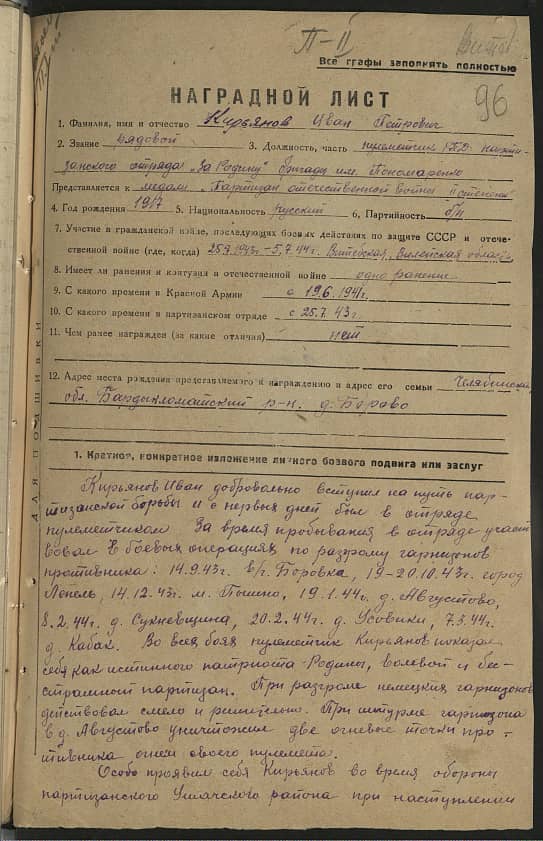 П-II
96
Все графы заполнять полностью
НАГРАДНОЙ ЛИСТ
1. Фамилия, имя и отчество Кирьянов Иван Петрович
2. Звание рядовой 3. Должность, часть пулеметчик парти-
занского отряда "За Родину" бригады им. Пономаренко
Представляется к медали "Партизан отечественной войны II степени"
4. Год рождения 1917 5. Национальность русский 6. Партийность б/п
7. Участие в гражданской войне, последующих боевых действиях по защите СССР и отече-
ственной войне (где, когда) 25.9.1943г-5.7.44г. Витебская, Вилейская область
8. Имеет ли ранения и контузии в отечественной войне одно ранение
9. С какого времени в Красной Армии с 19.6.1941г.
10. С какого времени в партизанском отряде с 25.7.43г.
11. Чем ранее награжден (за какие отличия) нет
12. Адрес места рождения представляемого к награждению и адрес его семьи Челябинская
обл. р-н. д. Борово
ДЛЯ ПОДШИВКИ
1. Краткое, конкретное изложение личного боевого подвига или заслуг
Кирьянов Иван добровольно вступил на путь пар-
тизанской борьбы и с первых дней был в отряде
пулеметчиком. За время пребывания в отряде участ
вовал в боевых операциях по разгрому гарнизонов
противника: 14.9.43г. в/г. Боровка, 19-20.10.43г. город
Лепель, 14.12.43г. м. Пышно, 19.1.44г. д. Августово,
8.2.44г. д. Сукневщина, 20.2.44г. д. Усовики, 7.3.44г.
д. Кабак. Во всех боях пулеметчик Кирьянов показал
себя как истинного патриота Родины, волевой и бес-
страшный партизан. При разгроме немецких гарнизонов
действовал смело и решительно. При штурме гарнизона
в д. Августово уничтожил две огневые точки про-
тивника огнем своего пулемета.
Особо проявил себя Кирьянов во время обороны
партизанского Ушачского района при наступлении